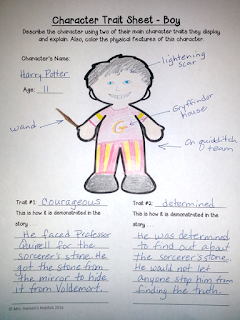 Character Trait Sheet - Boy
Describe the character using two of their main character traits they display
and explain. Also, color the physical features of this character.
lightening
scar
Character's Name:
Harry Potter
Age: 11
Gryffindor
house
wand
G
on quidditch
team
Trait #1: Courageous
This is how it is demonstrated in the
story . . .
He faced Professor
Quirell for the
sorcerer's stone. He
got the stone from
the mirror to hide
it from Voldemort.
Trait #2: determined
This is how it is demonstrated in the
story . . .
He was determined
to find out about
the sorcerer's stone.
He would not let
anyone stop him from
finding the truth.